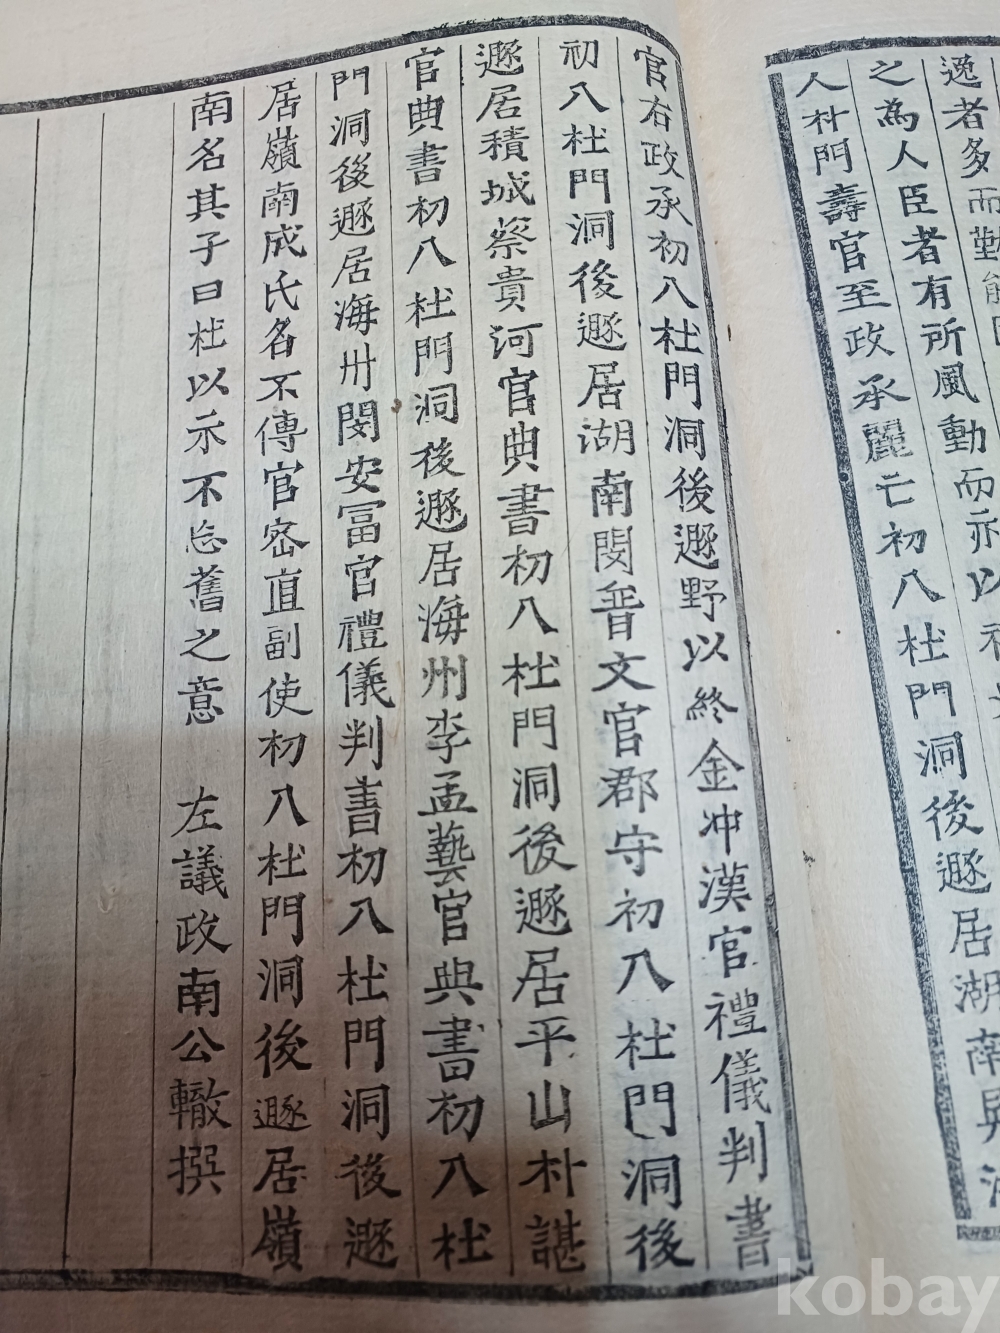 逸者多而勤
之為人臣者有所風動而示以
人朴門壽官至政承麗亡初八杜門洞後遯居湖南
官右政承初八杜門洞後遯野以終金冲漢官禮儀判書
初八杜門洞後遯居湖南閔普文官郡守初八杜門洞後
遯居積城蔡貴河官典書初八杜門洞後遯居平山朴諶
官典書初八杜門洞後遯居海州李孟藝官典書初八杜
門洞後遯居海州閔安富官禮儀判書初八杜門洞後遯
居嶺南成氏名不傳官密直副使初八杜門洞後遯居嶺
南名其子曰杜以示不忘舊之意 左議政南公轍撰
kobay